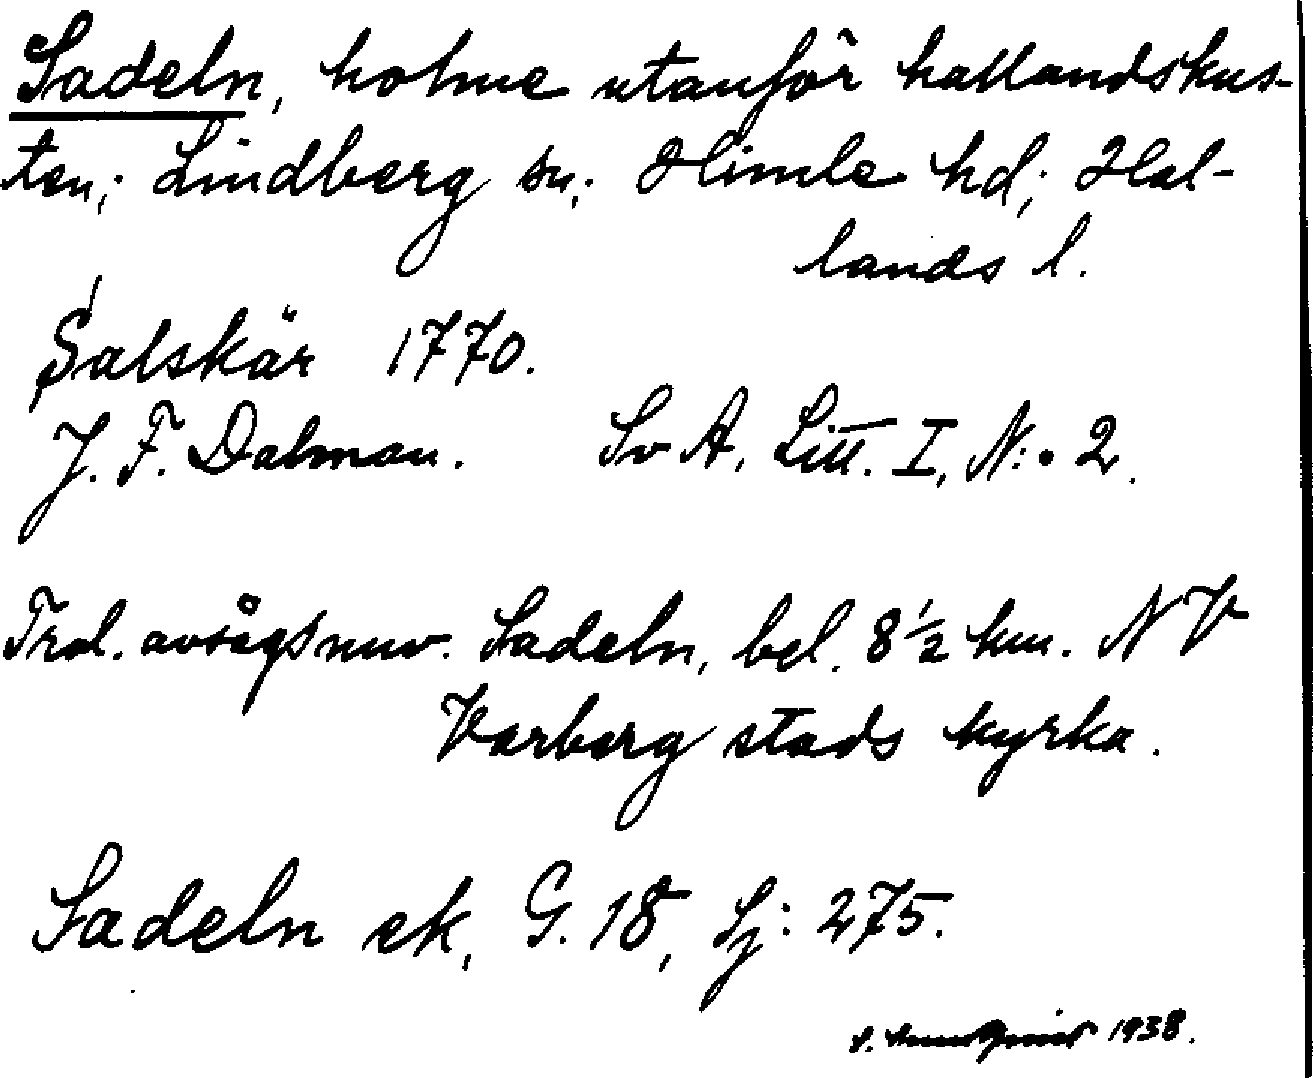 Sadeln, holme utanför hallandskus-
ten; Lindberg sn; Himle hd; Hal-
lands l.
Salskär 1770.
J. F. Dalman. Sv A, Litt. I, N:o 2.
Trol. avsågs nuv. Sadeln, bel. 8 1/2 km. NV
Varberg stads kyrka.
Sadeln ek, G. 18, Sj: 275.
1938.